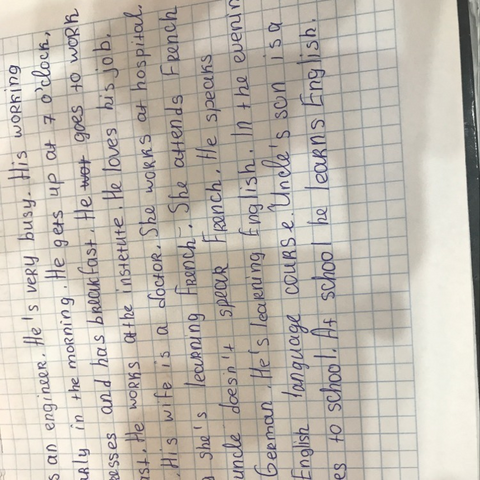 s an engineer. He's very busy. His working
rly in the morning. He gets up at 7 o'clock,
esses and has breakfast. He goes to work
ast. He works at the instetute. He loves his job.
His wife is a doctor. She works at hospital.
she's learning French. She attends French
uncle doesn't speak French. He speaks
German. He's learning English. In the evenin
English language course. Uncle's son is a
es to school. At school he learns English.